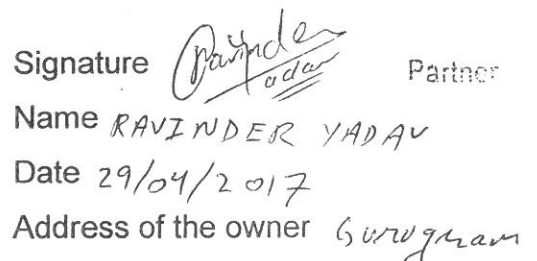 Signature Ravinder Yadav Partner
Name RAVINDER YADAV
Date 29/04/2017
Address of the owner Gurugram